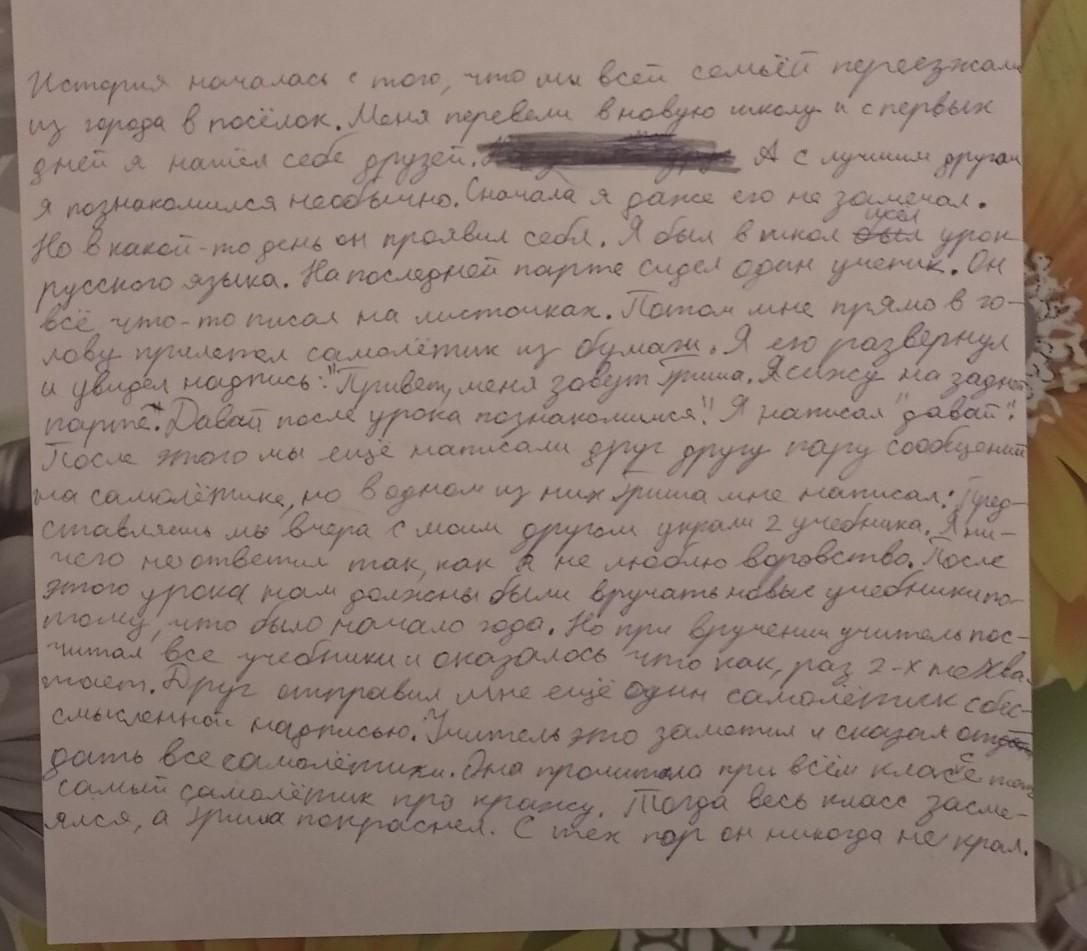 История началась с того, что мы всей семьёй переезжали
из города в посёлок. Меня перевели в новую школу и с первых
дней я нашёл себе друзей. А с лучшим другом
я познакомился необычно. Сначала я даже его не замечал.
Но в какой-то день он проявил себя. Я был в школ шёл урок
русского языка. На последней парте сидел один ученик. Он
всё что-то писал на листочках. Потом мне прямо в го-
лову прилетел самолётик из бумаги. Я его развернул
и увидел надпись: "Привет, меня зовут Гриша. Я сижу на задней
парте". Давай после урока познакомимся". Я написал "давай".
После этого мы ещё написали друг другу пару сообщений
на самолётике, но в одном из них Гриша мне написал: Пред-
ставляешь мы вчера с моим другом украли 2 учебника. Я ни-
чего не ответил так, как я не люблю воровство. После
этого урока нам должны были вручать новые учебники по-
тому, что было начало года. Но при вручении учитель пос-
читал все учебники и оказалось что как, раз 2-х не хва-
тает. Друг отправил мне ещё один самолётик с бес-
смысленной надписью. Учитель это заметил и сказал от
дать все самолётики. Она прочитала при всём классе тот
самый самолётик про кражу. Тогда весь класс засме-
ялся, а Гриша покраснел. С тех пор он никогда не крал.